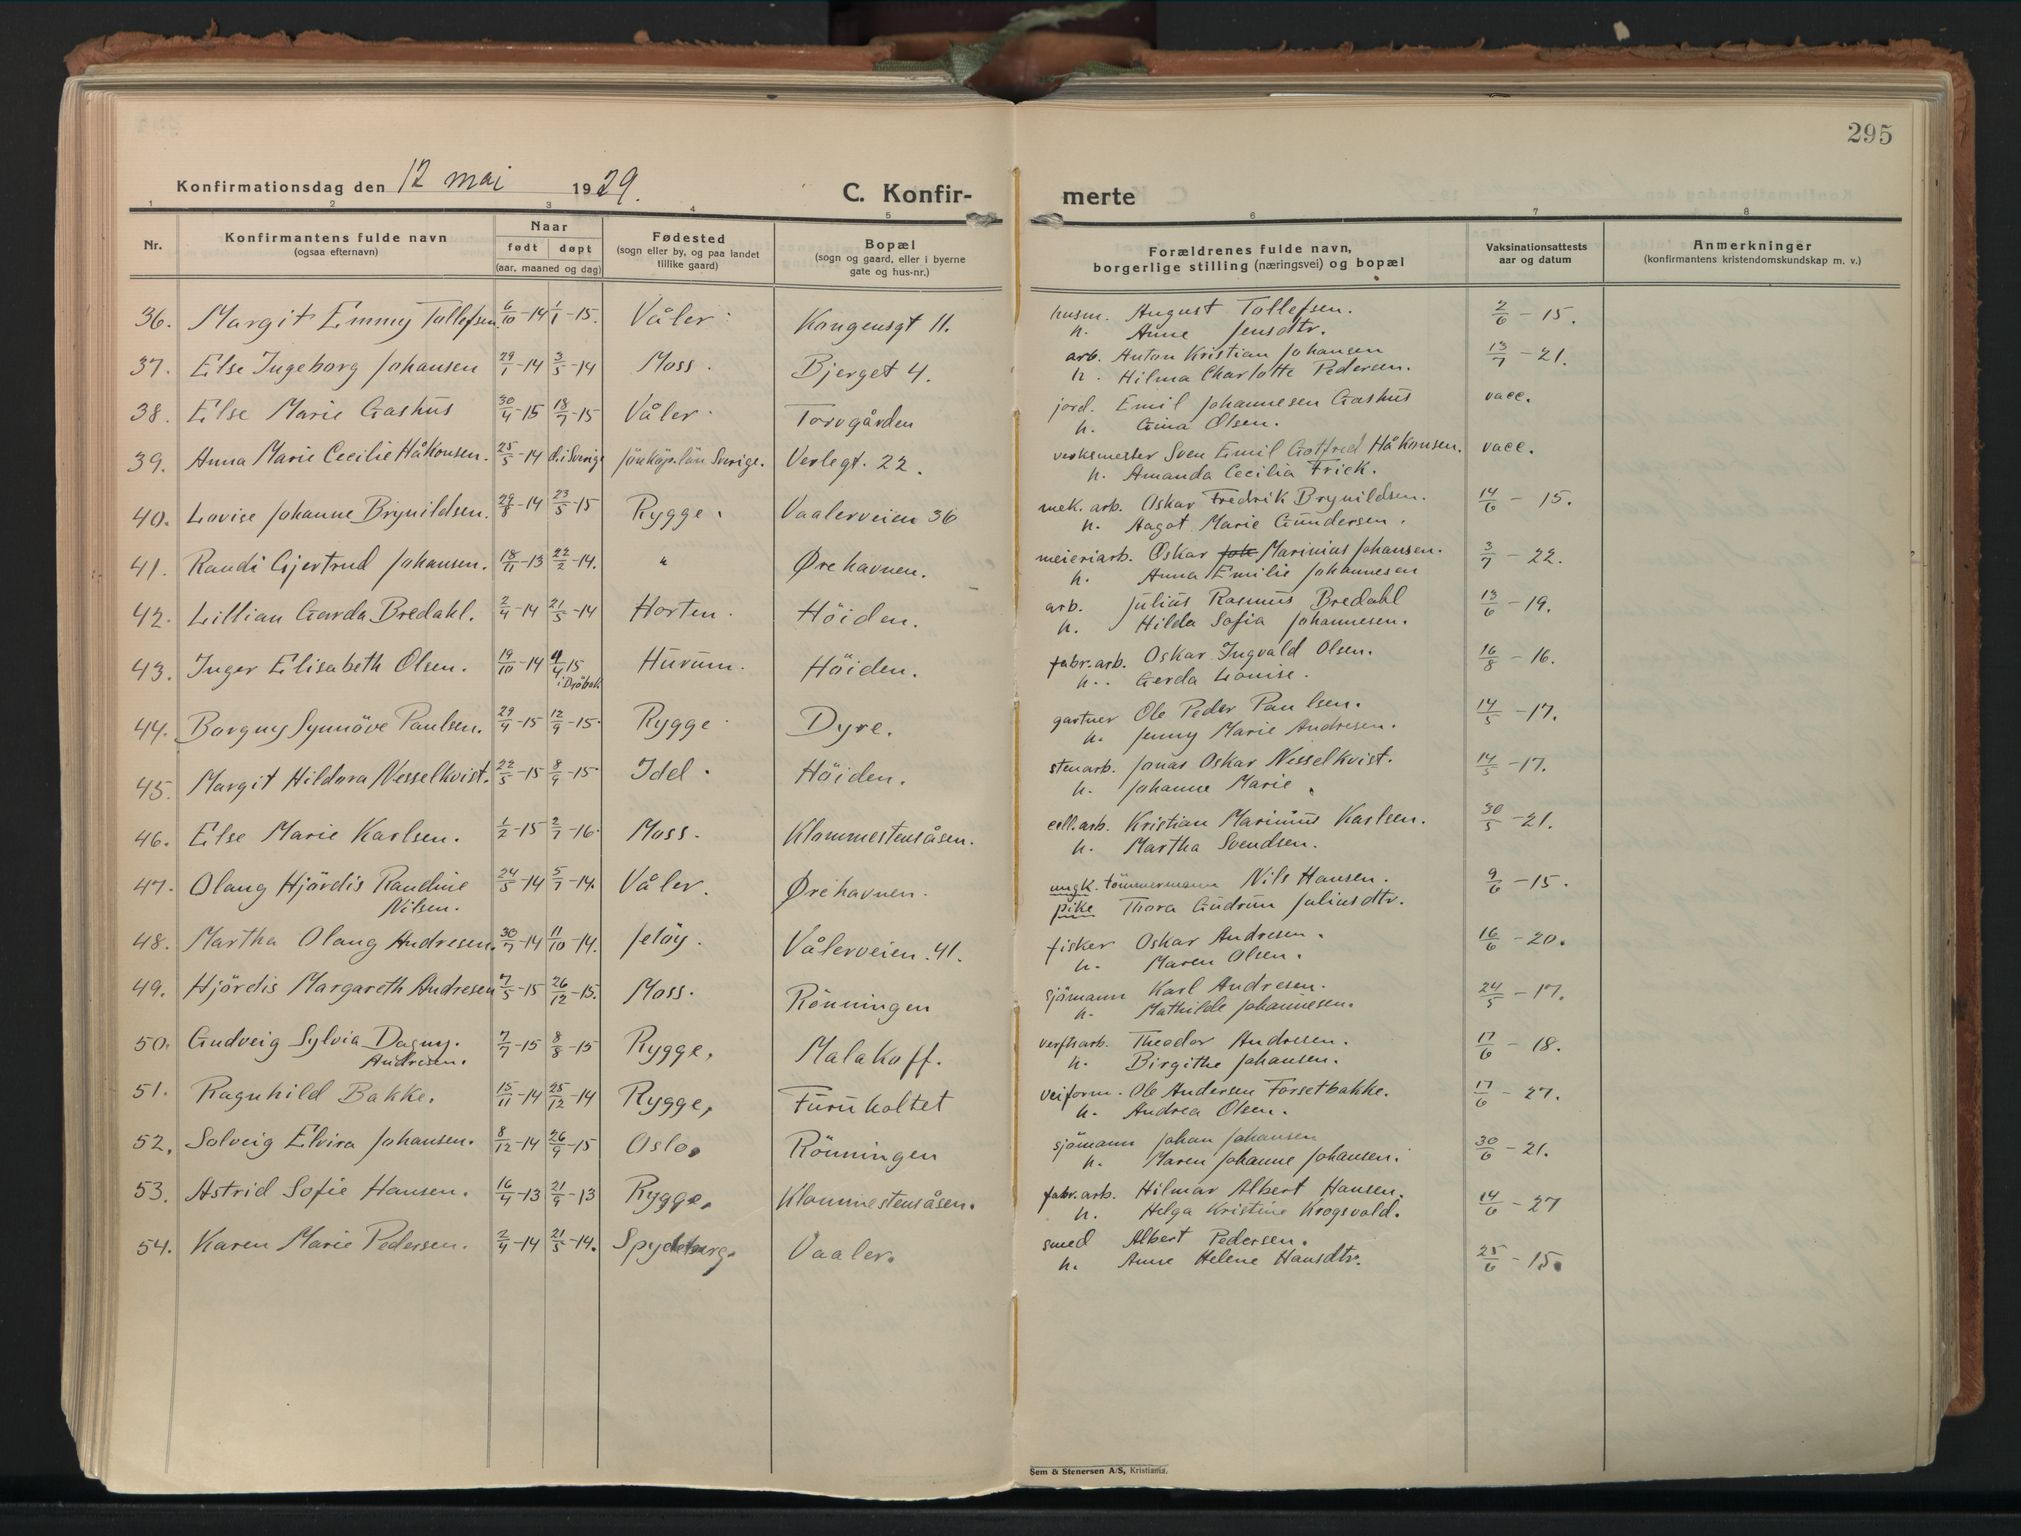 295
Konfirmationsdag den 12 mai 1929.
C. Konfirmerte
1 2 3 4 5 6 7 8
Nr. Konfirmantens fulde navn (ogsaa efternavn) Naar født døpt (aar, maaned og dag) Fødested (sogn eller by, og paa landet tillike gaard) Bopæl (sogn og gaard, eller i byerne gate og hus-nr.) Forældrenes fulde navn, borgerlige stilling (næringsvei) og bopæl Vaksinationsattests aar og datum Anmerkninger (konfirmantens kristendomskundskap m. v.)
36. Margit Emmy Tollefsen 6/10-14 1/1-15. Våler Kongensgt 11. husm. August Tollefsen. 2/6-15.
h. Anne Jensdtr.
37. Else Ingeborg Johansen 29/1-14 3/5-14 Moss. Bjerget 4. arb. Anton Kristian Johansen 13/7-21.
h. Hilma Charlotte Pedersen.
38. Else Marie Gashus 30/4-15 18/7-15 Våler. Torvgården jord. Emil Johannesen Gashus vacc.
h. Gina Olsen.
39. Anna Marie Cecilie Håkonsen. 25/5-14 d. i Sverige Jönköp. län Sverige. Verlegt. 22. verksmester Sven Emil Gotfred Håkonsen. vacc.
h. Amanda Cecilia Frick.
40. Lovise Johanne Brynildsen. 29/8-14 23/5-15 Rygge. Vaalerveien 36 mek. arb. Oskar Fredrik Brynildsen. 14/6-15.
h. Aagot Marie Gundersen.
41. Randi Gjertrud Johansen. 18/11-13 22/2-14. " Ørehavnen. meieriarb. Oskar Joh Marinius Johansen. 3/7-22.
h. Anna Emilie Johannesen
42. Lillian Garda Bredahl. 2/4-14 21/5-14 Horten. Höiden. arb. Julius Rasmus Bredahl 13/6-19.
h. Hilda Sofia Johannesen.
43. Inger Elisabeth Olsen. 19/10-14 4/4 15 Hurum. Höiden. fabr. arb. Oskar Ingvald Olsen. 16/8-16.
i Dröbak h. Gerda Louise.
44. Borgny Synnöve Paulsen. 29/4-15 12/9-15. Rygge Dyre. gartner Ole Peder Paulsen. 14/5-17.
h. Jenny Marie Andresen.
45. Margit Hildora Nesselkvist. 22/5-15 8/9-15. Idd. Höiden. stenarb. Jonas Oskar Nesselkvist. 14/5-17.
h. Johanne Marie.
46. Else Marie Karlsen. 1/2-15 2/7-16. Moss. Klommestensåsen. cell. arb. Kristian Marinius Karlsen. 30/5-21.
h. Martha Svendsen.
47. Olaug Hjördis Randine 24/5-14 5/7-14. Våler. Ørehavnen. ungk. tömmermann Nils Hansen. 9/6-15.
Nilsen. pike Thora Gudrun Juliusdtr.
48. Martha Olaug Andresen. 30/7-14 11/10-14. Jelöy. Vålerveien. 41. fisker Oskar Andresen. 16/6-20.
h. Maren Olsen.
49. Hjördis Margareth Andresen 7/5-15 26/12-15. Moss. Rönningen sjömann Karl Andresen. 24/5-17.
h. Mathilde Johannesen.
50. Gudveig Sylvia Dagny. 7/7-15 8/8-15 Rygge. Malakoff. verftsarb. Theodor Andresen. 17/6-18.
Andresen. h. Birgithe Johansen.
51. Ragnhild Bakke. 15/11-14 25/12-14 Rygge, Furuholtet veiform. Ole Andersen Forsetbakke. 17/6-27.
h. Andrea Olsen.
52. Solveig Elvira Johansen. 8/12-14 26/9-15 Oslo. Rönningen sjömann Johan Johansen 30/6-21.
h. Maren Johanne Johansen.
53. Astrid Sofie Hansen. 16/4-13 21/9-13 Rygge. Klommestensåsen. fabr. arb. Hilmar Albert Hansen. 14/6-27
h. Helga Kristine Krogsvold.
54. Karen Marie Pedersen. 2/4-14 21/5-14. Spydeberg. Vaaler. smed Albert Pedersen. 25/6-15.
h. Anne Helene Hansdtr.
Sem & Stenersen A/S, Kristiania.